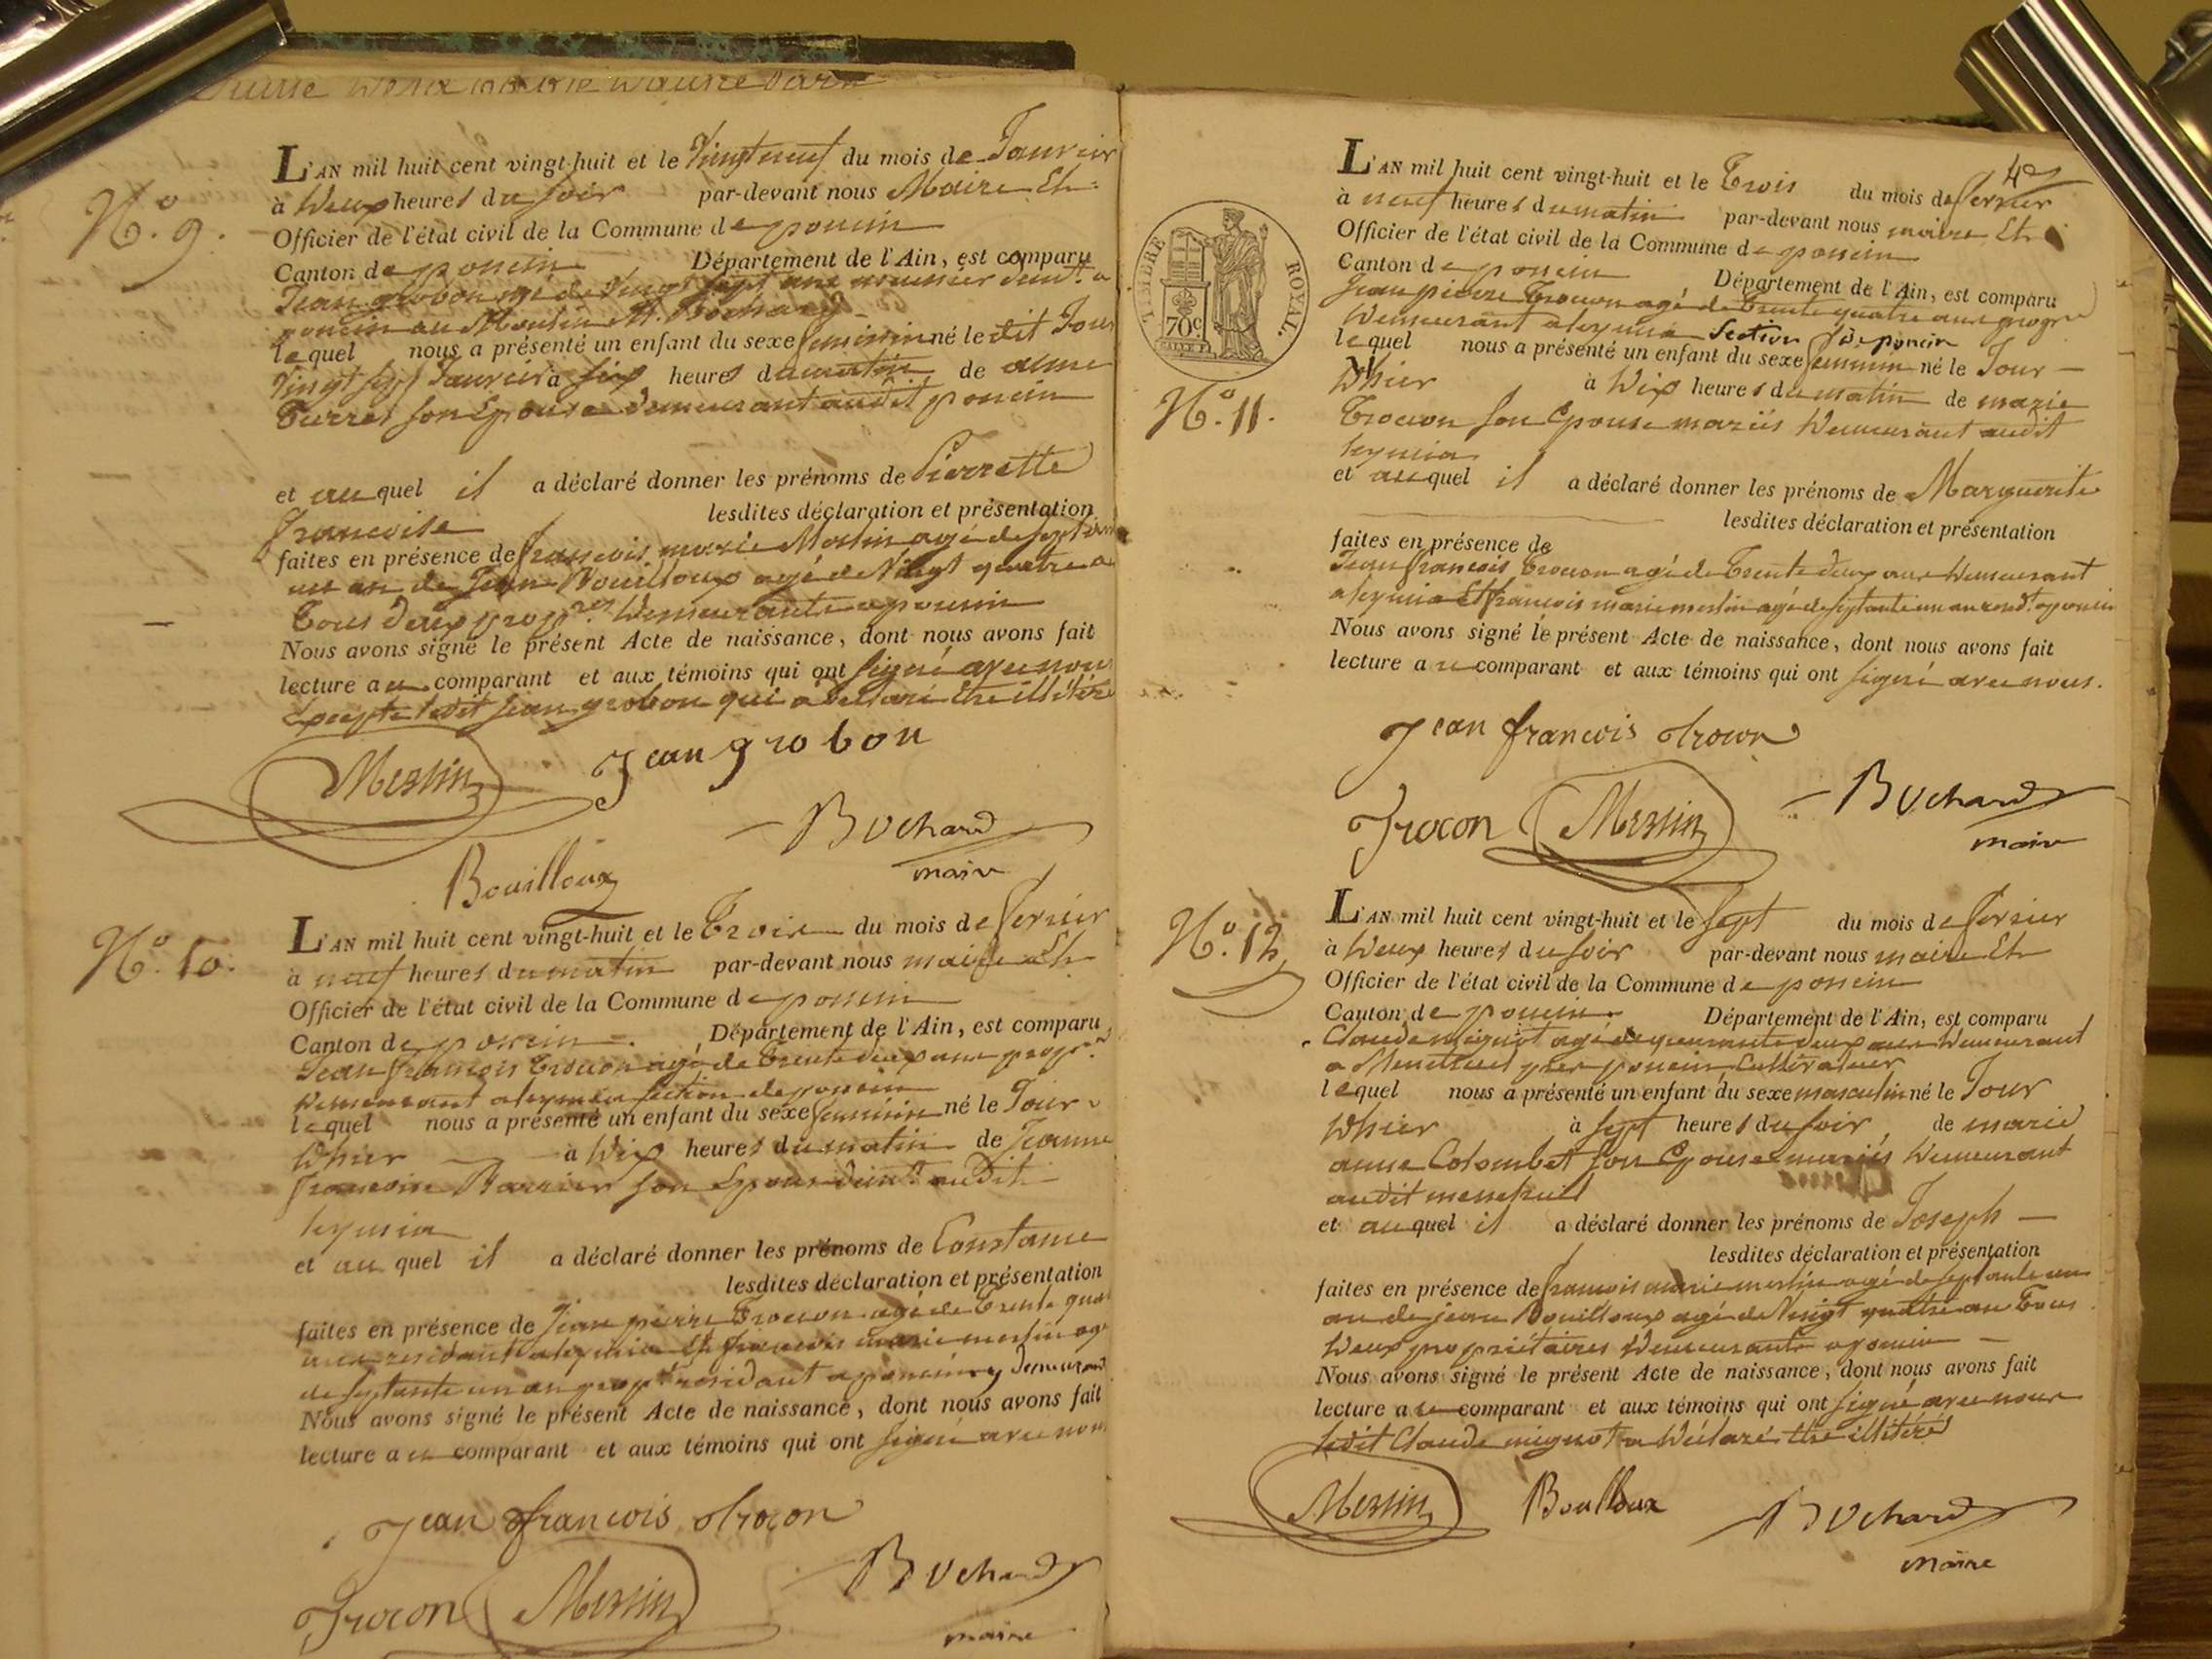 N.º 9.
L'AN mil huit cent vingt-huit et le Vingt neuf du mois de Janvier
à Deux heures du soir par-devant nous Maire Et
Officier de l'état civil de la Commune de poncin
Canton de poncin Département de l'Ain, est comparu
Jean grobon agé de Vingt sept ans meunier demt. a
poncin au Moulin
lequel nous a présenté un enfant du sexe feminin né le dit Jour
Vingt Janvier à six heures du matin de anne
son Epouse demeurant audit poncin
et auquel il a déclaré donner les prénoms de Pierrette
francoise lesdites déclaration et présentation
faites en présence de francois marie Merlin agé de septante
un an de Jean Bouilloux agé de Vingt quatre a
Tous deux propres. Demeurants a poncin
Nous avons signé le présent Acte de naissance, dont nous avons fait
lecture au comparant et aux témoins qui ont signé avec nous
Excepté ledit jean grobon qui a declaré Etre illitéré
Merlin Jean grobon
Buchard
maire
Bouilloux
N.º 10.
L'AN mil huit cent vingt-huit et le Trois du mois de fevrier
à neuf heures du matin par-devant nous maire Et
Officier de l'état civil de la Commune de poncin
Canton de poncin Département de l'Ain, est comparu
Jean francois Trocon agé de Trente deux ans propre.
Demeurant a leymia section de poncin
lequel nous a présenté un enfant du sexe feminin né le Jour
D'hier à Dix heures du matin de Jeanne
francoise Barrier son Epouse demt. audit
leymia
et auquel il a déclaré donner les prénoms de Constance
lesdites déclaration et présentation
faites en présence de Jean pierre Trocon agé de Trente quatre
ans residant a leymia Et francois marie merlin agé
de septante un an propre. residant a poncin y demeurant
Nous avons signé le présent Acte de naissance, dont nous avons fait
lecture au comparant et aux témoins qui ont signé avec nous
Jean francois trocon
Trocon Merlin Buchard
maire
4e
TIMBRE ROYAL.
70c
N.º 11.
L'AN mil huit cent vingt-huit et le Trois du mois de fevrier
à neuf heures du matin par-devant nous maire Et
Officier de l'état civil de la Commune de poncin
Canton de poncin Département de l'Ain, est comparu
Jean pierre Trocon agé de Trente quatre ans propre
Demeurant a leymia Section de poncin
lequel nous a présenté un enfant du sexe feminin né le Jour
D'hier à Dix heures du matin de marie
Trocon son Epouse mariés Demeurant audit
leymia
et auquel il a déclaré donner les prénoms de Marguerite
lesdites déclaration et présentation
faites en présence de
Jean francois Trocon agé de Trente deux ans Demeurant
a leymia Et francois marie merlin agé de septante un an resdt. a poncin
Nous avons signé le présent Acte de naissance, dont nous avons fait
lecture au comparant et aux témoins qui ont signé avec nous.
Jean francois trocon
Trocon Merlin Buchard
maire
N.º 12
L'AN mil huit cent vingt-huit et le sept du mois de fevrier
à Deux heures du soir par-devant nous maire Et
Officier de l'état civil de la Commune de poncin
Canton de poncin Département de l'Ain, est comparu
Claude mignot agé de quarante deux ans Demeurant
a Menetruel pres poncin Cultivateur
lequel nous a présenté un enfant du sexe masculin né le Jour
D'hier à sept heures du soir de marie
anne Colombet son Epouse mariés Demeurant
audit menetruel
et auquel il a déclaré donner les prénoms de Joseph
lesdites déclaration et présentation
faites en présence de francois marie merlin agé de septante un
an de jean Bouilloux agé de Vingt quatre an Tous
Deux propriétaires Demeurants a poncin
Nous avons signé le présent Acte de naissance, dont nous avons fait
lecture au comparant et aux témoins qui ont signé avec nous
ledit Claude mignot a Déclaré Etre illitéré
Merlin Bouilloux Buchard
maire